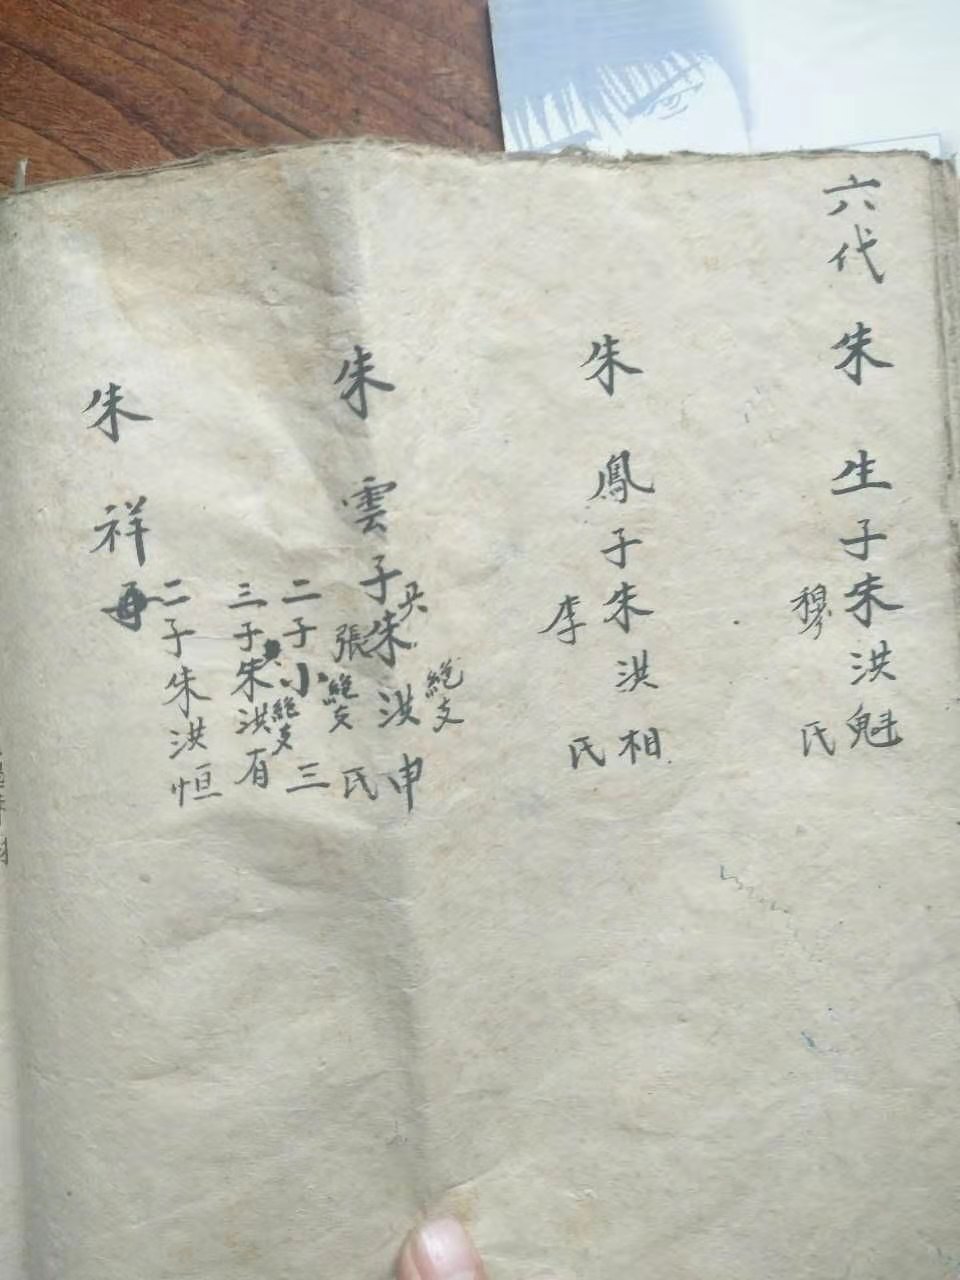 六代 朱生子朱洪魁
穆氏
朱鳳子朱洪相
李氏
朱雲子朱洪申
絶支
張氏
絶支
二子小三
絶支
三子朱洪有
朱祥
二子朱洪恒